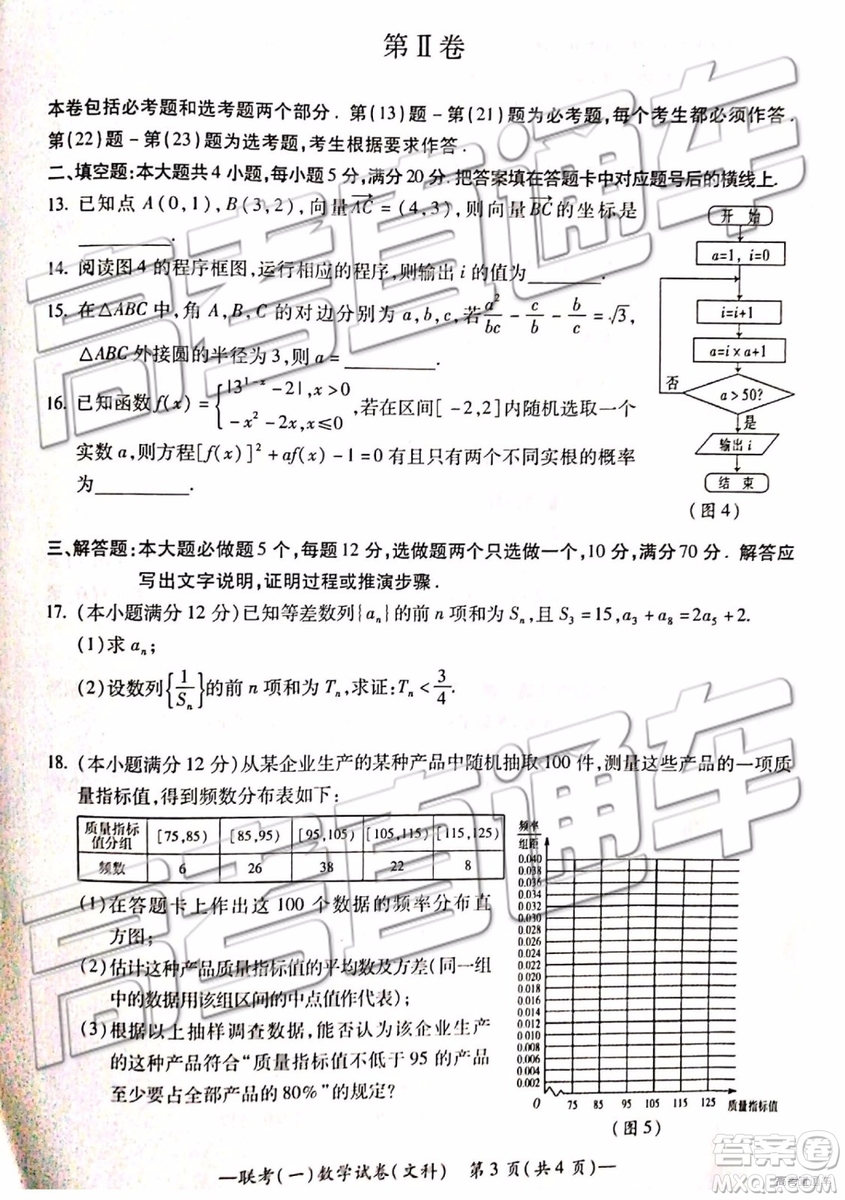 第Ⅱ卷
本卷包括必考题和选考题两个部分．第(13)题－第(21)题为必考题，每个考生都必须作答．
第(22)题－第(23)题为选考题，考生根据要求作答．
二、填空题：本大题共4小题，每小题5分，满分20分．把答案填在答题卡中对应题号后的横线上．
13. 已知点A(0,1),B(3,2),向量AC=(4,3),则向量BC的坐标是
________.
14. 阅读图4的程序框图,运行相应的程序,则输出i的值为________.
15. 在△ABC中,角A,B,C的对边分别为a,b,c,若a²/bc - c/b - b/c = √3,
△ABC外接圆的半径为3,则a=________.
16. 已知函数f(x)={|3^(1-x)-2|,x>0
-x²-2x,x≤0,若在区间[-2,2]内随机选取一个
实数a,则方程[f(x)]²+af(x)-1=0有且只有两个不同实根的概率
为________.
开始
a=1, i=0
i=i+1
a=i×a+1
a>50?
否
是
输出i
结束
(图4)
三、解答题：本大题必做题5个，每题12分，选做题两个只选做一个，10分，满分70分．解答应
写出文字说明，证明过程或推演步骤．
17. (本小题满分12分)已知等差数列{aₙ}的前n项和为Sₙ,且S₃=15,a₃+a₈=2a₅+2.
(1)求aₙ;
(2)设数列{1/Sₙ}的前n项和为Tₙ,求证:Tₙ<3/4.
18. (本小题满分12分)从某企业生产的某种产品中随机抽取100件,测量这些产品的一项质
量指标值,得到频数分布表如下:
质量指标值分组 [75,85) [85,95) [95,105) [105,115) [115,125)
频数 6 26 38 22 8
(1)在答题卡上作出这100个数据的频率分布直
方图;
(2)估计这种产品质量指标值的平均数及方差(同一组
中的数据用该组区间的中点值作代表);
(3)根据以上抽样调查数据,能否认为该企业生产
的这种产品符合“质量指标值不低于95的产品
至少要占全部产品的80%”的规定?
频率
组距
0.040
0.038
0.036
0.034
0.032
0.030
0.028
0.026
0.024
0.022
0.020
0.018
0.016
0.014
0.012
0.010
0.008
0.006
0.004
0.002
O 75 85 95 105 115 125 质量指标值
(图5)
—联考(一)数学试卷(文科) 第3页(共4页)—
高考直通车
高考直通车
答案圈